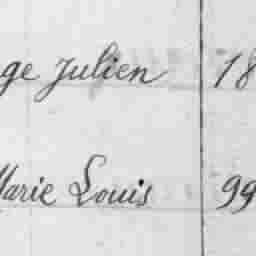 ge Julien 18
Marie Louis 99